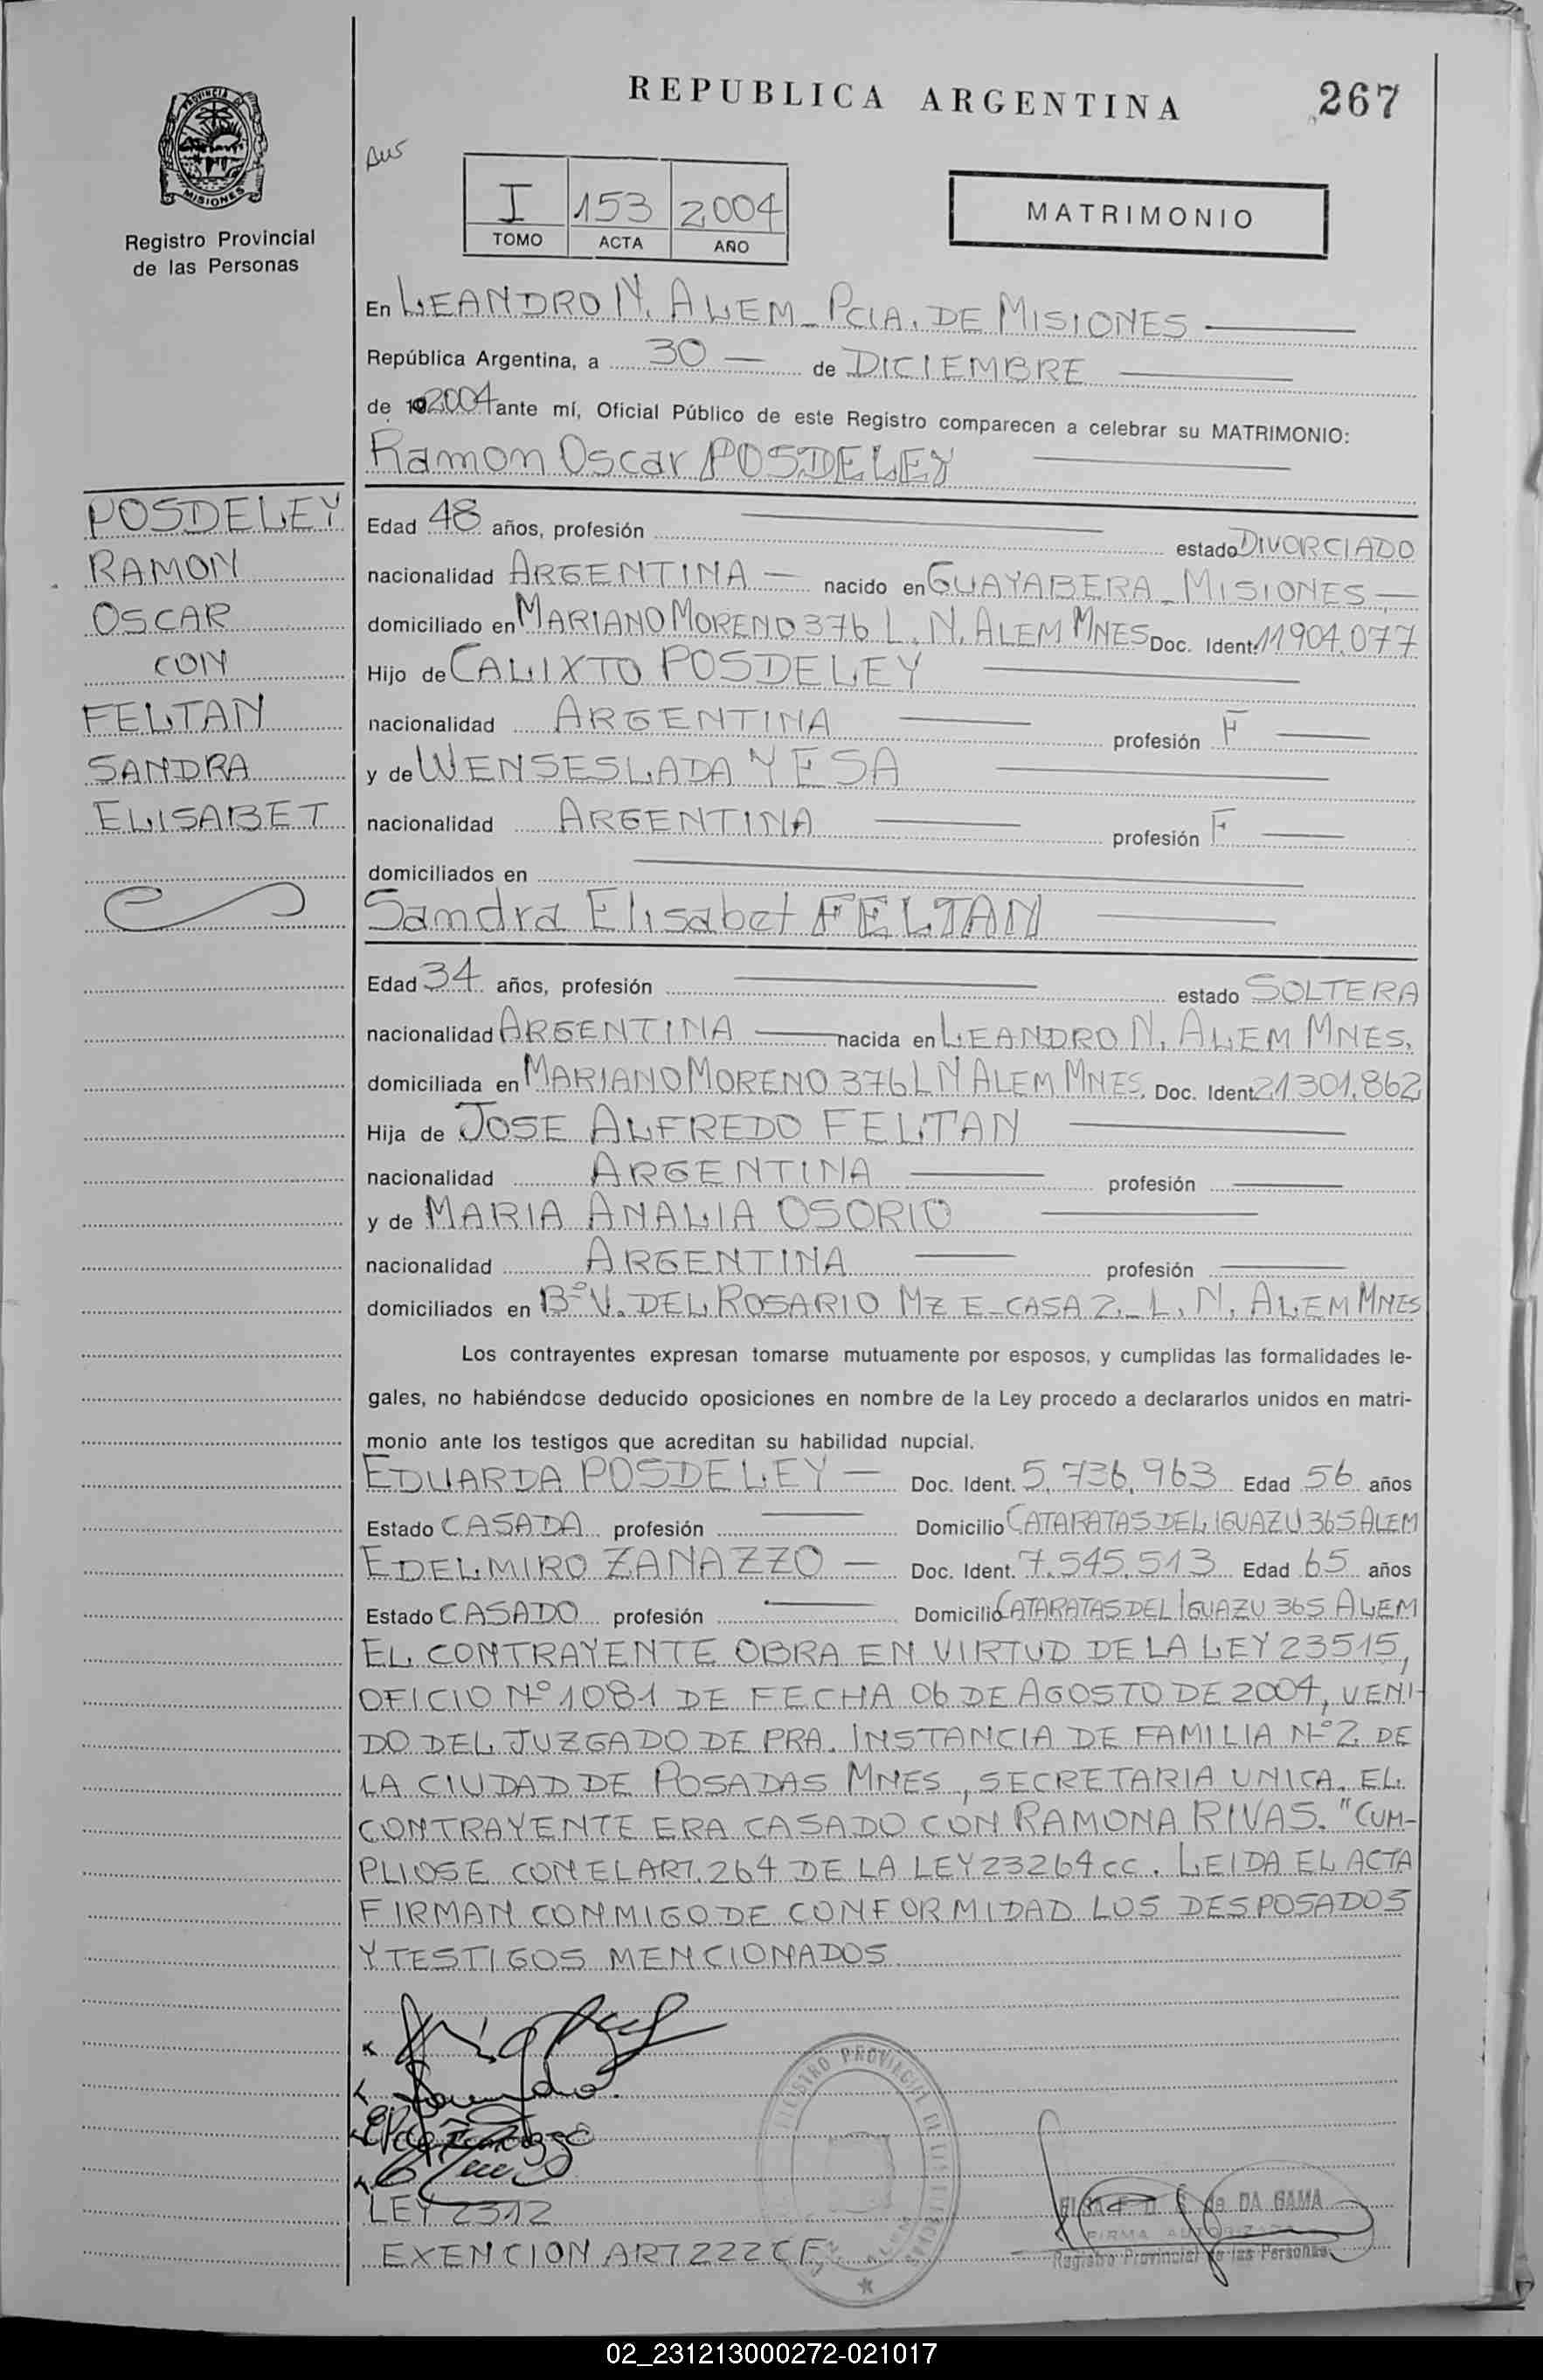 REPUBLICA ARGENTINA
267
PROVINCIA DE
MISIONES
Registro Provincial
de las Personas
I 153 2004
TOMO ACTA AÑO
MATRIMONIO
En LEANDRO N. ALEM - PCIA. DE MISIONES
República Argentina, a 30 de DICIEMBRE
de 2004 ante mí, Oficial Público de este Registro comparecen a celebrar su MATRIMONIO:
Ramon Oscar POSDELEY
POSDELEY
RAMON
OSCAR
CON
FELTAN
SANDRA
ELISABET
Edad 48 años, profesión estado DIVORCIADO
nacionalidad ARGENTINA nacido en GUAYABERA - MISIONES
domiciliado en MARIANO MORENO 376 L. N. ALEM MNES Doc. Ident. 11904.077
Hijo de CALIXTO POSDELEY
nacionalidad ARGENTINA profesión F
y de WENSESLADA YESA
nacionalidad ARGENTINA profesión F
domiciliados en
Sandra Elisabet FELTAN
Edad 34 años, profesión estado SOLTERA
nacionalidad ARGENTINA nacida en LEANDRO N. ALEM MNES.
domiciliada en MARIANO MORENO 376 L N ALEM MNES. Doc. Ident. 21301.862
Hija de JOSE ALFREDO FELTAN
nacionalidad ARGENTINA profesión
y de MARIA ANALIA OSORIO
nacionalidad ARGENTINA profesión
domiciliados en B° V. DEL ROSARIO MZ E-CASA 2 - L. N. ALEM MNES
Los contrayentes expresan tomarse mutuamente por esposos, y cumplidas las formalidades le-
gales, no habiéndose deducido oposiciones en nombre de la Ley procedo a declararlos unidos en matri-
monio ante los testigos que acreditan su habilidad nupcial.
EDUARDA POSDELEY Doc. Ident. 5.736.963 Edad 56 años
Estado CASADA profesión Domicilio CATARATAS DEL IGUAZU 365 ALEM
EDELMIRO ZANAZZO Doc. Ident. 7.545.513 Edad 65 años
Estado CASADO profesión Domicilio CATARATAS DEL IGUAZU 365 ALEM
EL CONTRAYENTE OBRA EN VIRTUD DE LA LEY 23515,
OFICIO N° 1081 DE FECHA 06 DE AGOSTO DE 2004, VENI-
DO DEL JUZGADO DE PRA. INSTANCIA DE FAMILIA N° 2 DE
LA CIUDAD DE POSADAS MNES, SECRETARIA UNICA. EL
CONTRAYENTE ERA CASADO CON RAMONA RIVAS. "CUM-
PLIOSE CON EL ART. 264 DE LA LEY 23264 cc. LEIDA EL ACTA
FIRMAN CONMIGO DE CONFORMIDAD LOS DESPOSADOS
Y TESTIGOS MENCIONADOS
LEY 2312
EXENCION ART 222 C F
REGISTRO PROVINCIAL DE LAS PERSONAS
de DA GAMA
FIRMA AUTORIZADA
Registro Provincial de las Personas
02_231213000272-021017